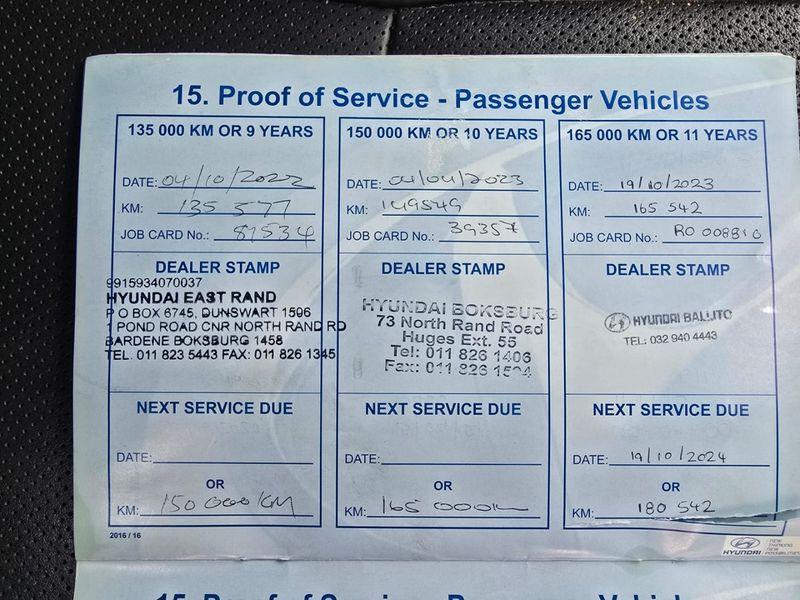 15. Proof of Service - Passenger Vehicles
135 000 KM OR 9 YEARS
DATE: 04/10/2022
KM: 135 577
JOB CARD No.: 81534
DEALER STAMP
9915934070037
HYUNDAI EAST RAND
P O BOX 6745, DUNSWART 1506
1 POND ROAD CNR NORTH RAND RD
BARDENE BOKSBURG 1458
TEL. 011 823 5443 FAX: 011 826 1345
NEXT SERVICE DUE
DATE:
OR
KM: 150 000 KM
150 000 KM OR 10 YEARS
DATE: 04/04/2023
KM: 149549
JOB CARD No.: 39357
DEALER STAMP
HYUNDAI BOKSBURG
73 North Rand Road
Huges Ext. 55
Tel: 011 826 1406
Fax: 011 826
NEXT SERVICE DUE
DATE:
OR
KM: 165 000K
165 000 KM OR 11 YEARS
DATE: 19/10/2023
KM: 165 542
JOB CARD No.: RO 008810
DEALER STAMP
HYUNDAI BALLITO
TEL: 032 940 4443
NEXT SERVICE DUE
DATE: 19/10/2024
OR
KM: 180 542
2016 / 16
HYUNDAI
NEW
THINKING.
NEW
POSSIBILITIES.
15. Proof of Service - Passenger Vehicles